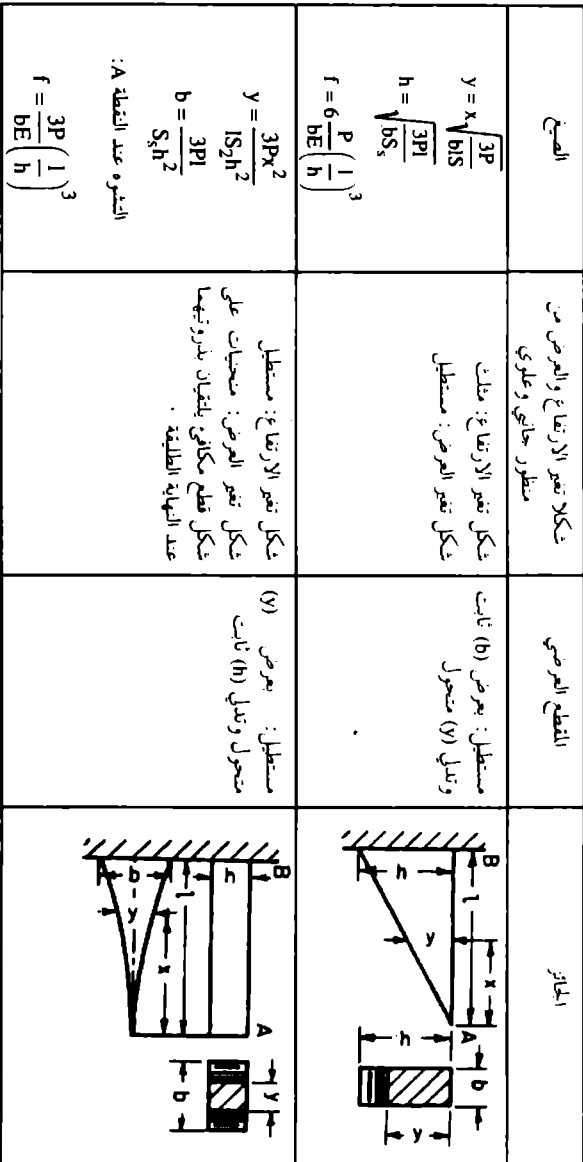 الجائز
المقطع العرضي
شكلا تغير الارتفاع والعرض من
منظور جانبي وعلوي
الصيغ
B
l
x
A
h
y
b
h
y
مستطيل: بعرض (b) ثابت
وتدلي (y) متحول
شكل تغير الارتفاع: مثلث
شكل تغير العرض: مستطيل
y = x√(3P/blS)
h = √(3Pl/bSₛ)
f = 6 P/bE (l/h)³
B
A
h
l
x
b
y
y
b
مستطيل: بعرض (y)
متحول وتدلي (h) ثابت
شكل تغير الارتفاع: مستطيل
شكل تغير العرض: منحنيات على
شكل قطع مكافئ يلتقيان بذروتيهما
عند النهاية الطليقة.
y = 3Px²/lS₂h²
b = 3Pl/Sₛh²
التشوه عند النقطة A:
f = 3P/bE (l/h)³